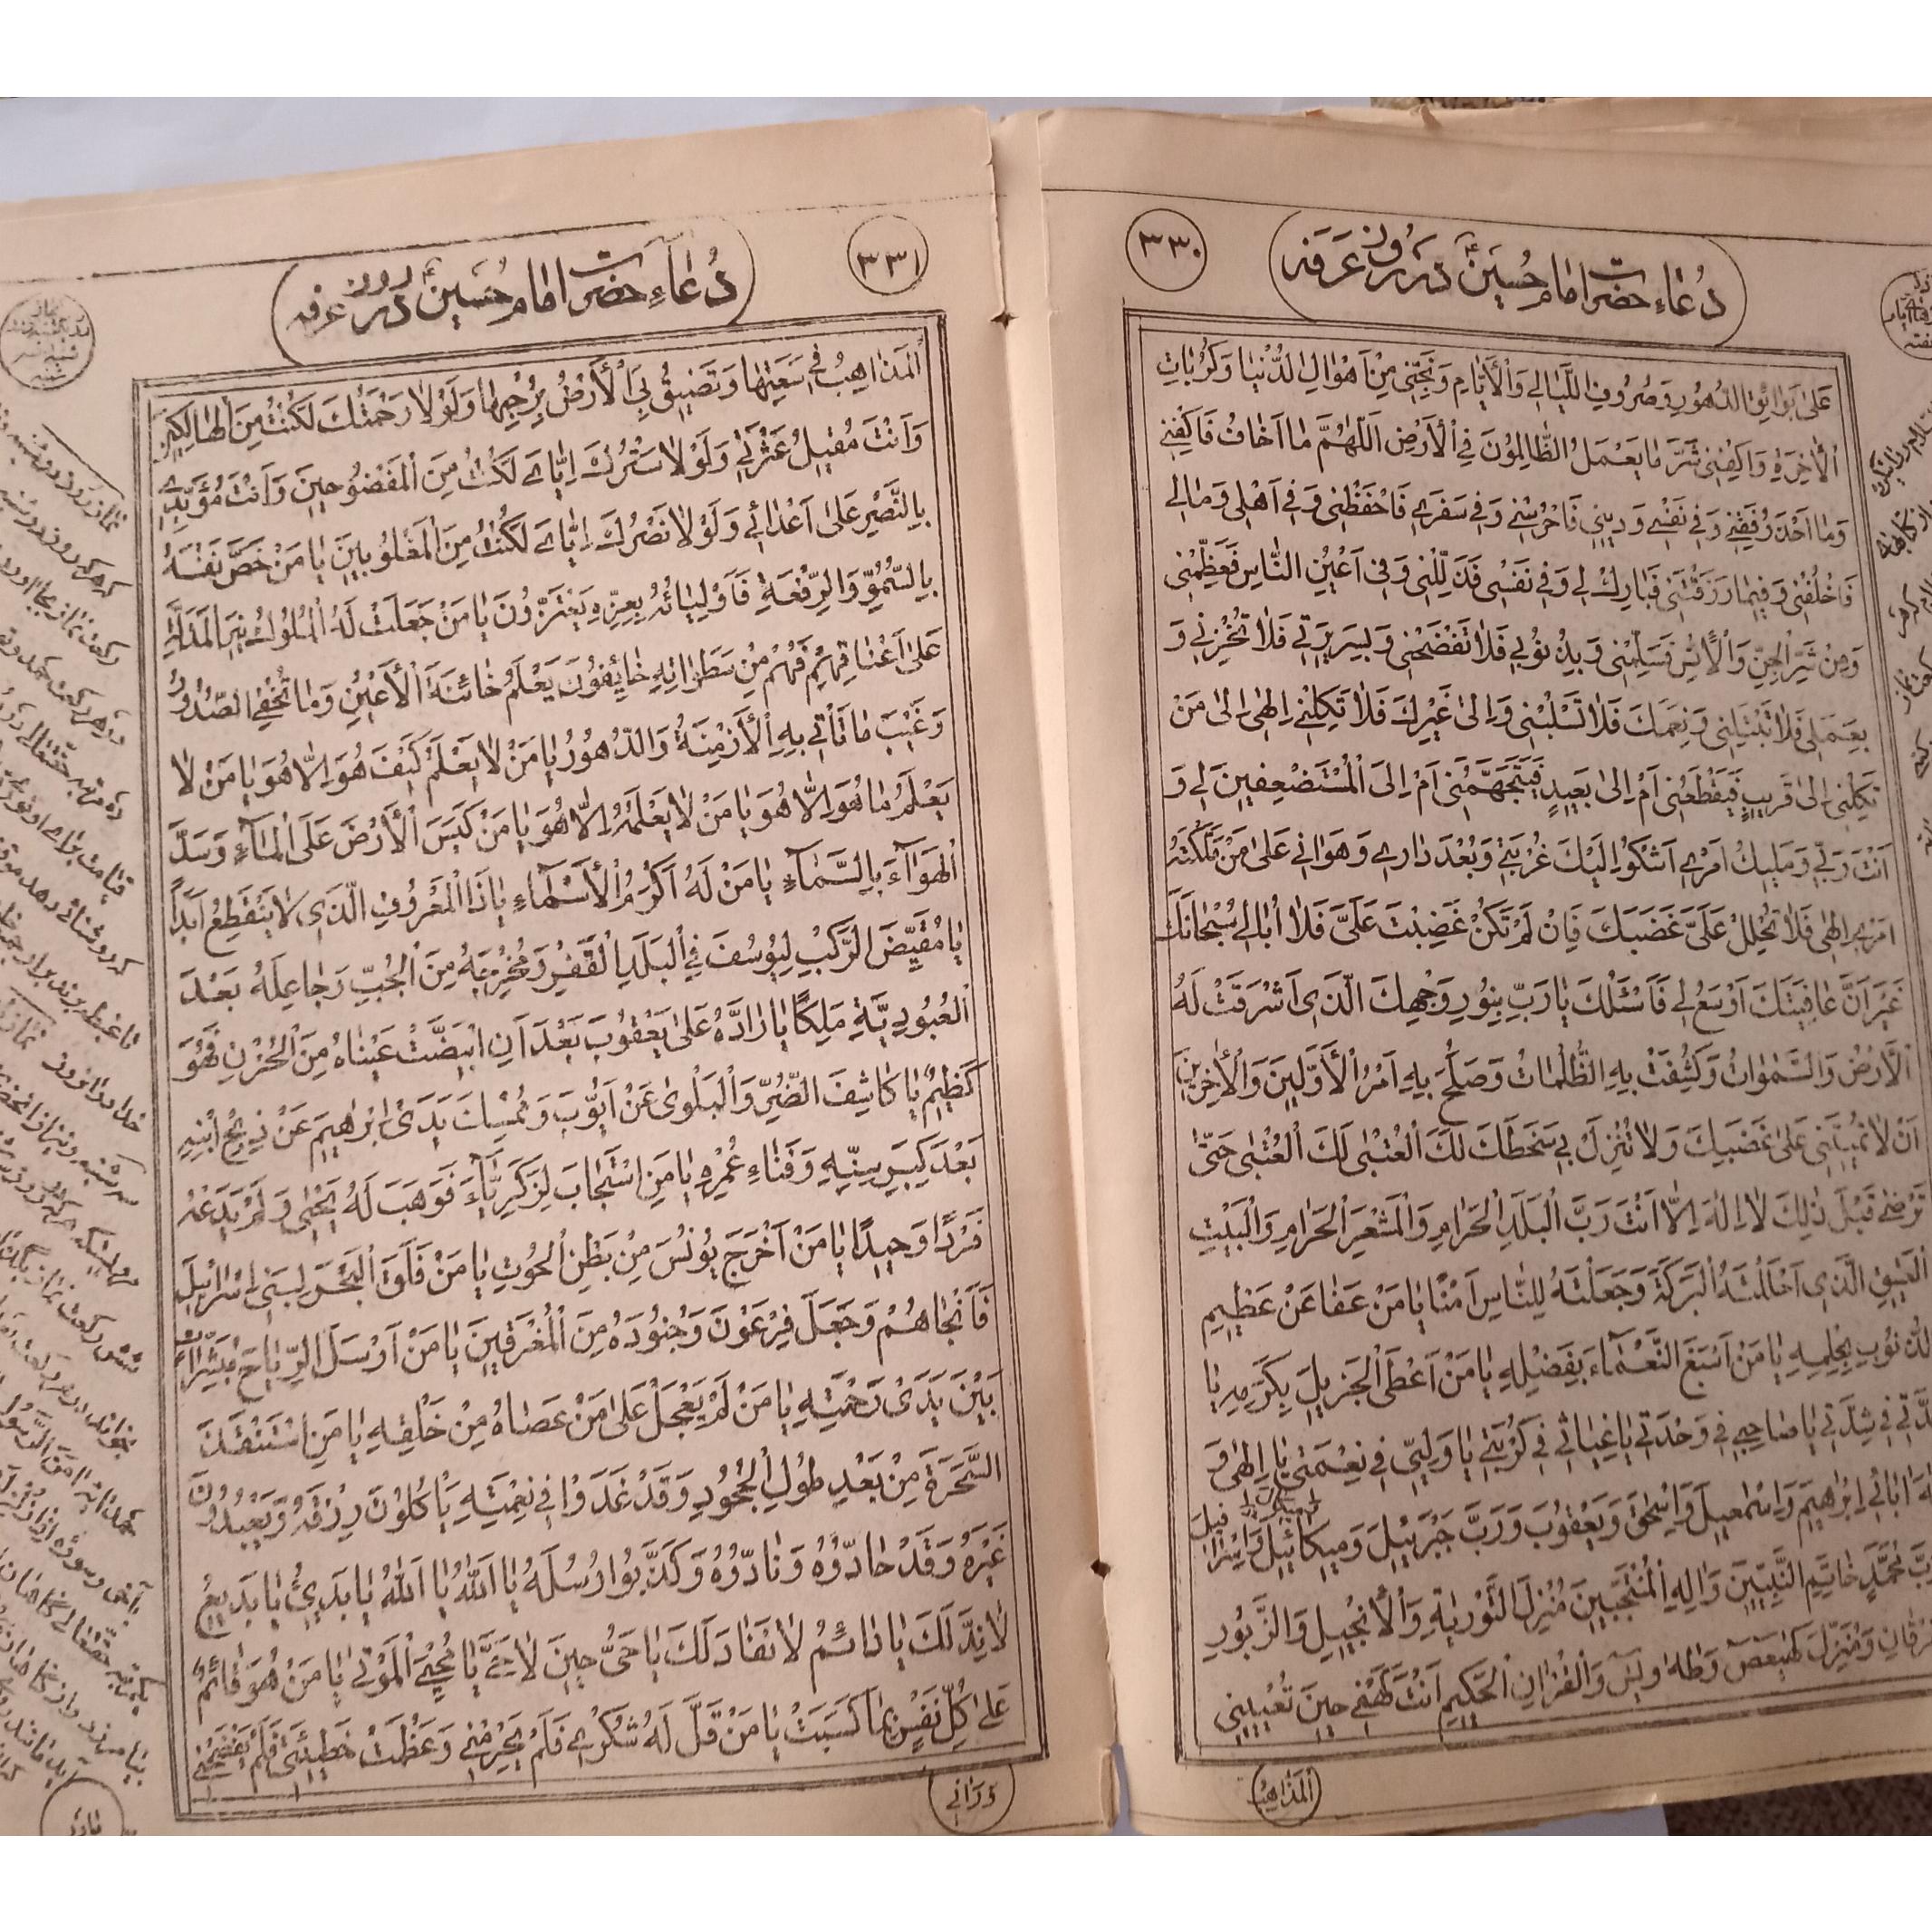 ٣٣٠
دُعٰاءِ حضرت امام حُسَين ع در روز عَرَفه
عَلىٰ بَوٰائِقِ الدُّهُورِ وَصُرُوفِ اللَّيٰالي وَالْأَيّٰامِ وَنَجِّنِي مِنْ اَهْوٰالِ الدُّنْيٰا وَكُرُبٰاتِ
الْاٰخِرَةِ وَاكْفِنِي شَرَّ مٰا يَعْمَلُ الظّٰالِمُونَ فِي الْأَرْضِ اَللّٰهُمَّ مٰا اَخٰافُ فَاكْفِنِي
وَمٰا اَحْذَرُ فَقِنِي وَفِي نَفْسِي وَدِينِي فَاحْرُسْنِي وَفِي سَفَرِي فَاحْفَظْنِي وَفِي اَهْلِي وَمٰالِي
فَاخْلُفْنِي وَفِيمٰا رَزَقْتَنِي فَبٰارِكْ لِي وَفِي نَفْسِي فَذَلِّلْنِي وَفِي اَعْيُنِ النّٰاسِ فَعَظِّمْنِي
وَمِنْ شَرِّ الْجِنِّ وَالْأِنْسِ فَسَلِّمْنِي وَبِذُنُوبِي فَلٰا تَفْضَحْنِي وَبِسَرِيرَتِي فَلٰا تُخْزِنِي وَ
بِعَمَلِي فَلٰا تَبْتَلِنِي وَنِعَمَكَ فَلٰا تَسْلُبْنِي وَاِلىٰ غَيْرِكَ فَلٰا تَكِلْنِي اِلٰهِي اِلىٰ مَنْ
تَكِلُنِي اِلىٰ قَرِيبٍ فَيَقْطَعُنِي اَمْ اِلىٰ بَعِيدٍ فَيَتَجَهَّمُنِي اَمْ اِلَى الْمُسْتَضْعِفِينَ لِي وَ
اَنْتَ رَبِّي وَمَلِيكُ اَمْرِي اَشْكُو اِلَيْكَ غُرْبَتِي وَبُعْدَ دٰارِي وَهَوٰانِي عَلىٰ مَنْ مَلَّكْتَهُ
اَمْرِي اِلٰهِي فَلٰا تُحْلِلْ عَلَيَّ غَضَبَكَ فَاِنْ لَمْ تَكُنْ غَضِبْتَ عَلَيَّ فَلٰا اُبٰالِي سُبْحٰانَكَ
غَيْرَ اَنَّ عٰافِيَتَكَ اَوْسَعُ لِي فَاَسْئَلُكَ يٰا رَبِّ بِنُورِ وَجْهِكَ الَّذِي اَشْرَقَتْ لَهُ
الْأَرْضُ وَالسَّمٰوٰاتُ وَكُشِفَتْ بِهِ الظُّلُمٰاتُ وَصَلَحَ بِهِ اَمْرُ الْأَوَّلِينَ وَالْاٰخِرِينَ
اَنْ لٰا تُمِيتَنِي عَلىٰ غَضَبِكَ وَلٰا تُنْزِلَ بِي سَخَطَكَ لَكَ الْعُتْبىٰ لَكَ الْعُتْبىٰ حَتّىٰ
تَرْضىٰ قَبْلَ ذٰلِكَ لٰا اِلٰهَ اِلّٰا اَنْتَ رَبَّ الْبَلَدِ الْحَرٰامِ وَالْمَشْعَرِ الْحَرٰامِ وَالْبَيْتِ
الْعَتِيقِ الَّذِي اَحْلَلْتَهُ الْبَرَكَةَ وَجَعَلْتَهُ لِلنّٰاسِ اَمْنًا يٰا مَنْ عَفٰا عَنْ عَظِيمِ
الذُّنُوبِ بِحِلْمِهِ يٰا مَنْ اَسْبَغَ النَّعْمٰاءَ بِفَضْلِهِ يٰا مَنْ اَعْطَى الْجَزِيلَ بِكَرَمِهِ يٰا
عُدَّتِي فِي شِدَّتِي يٰا صٰاحِبِي فِي وَحْدَتِي يٰا غِيٰاثِي فِي كُرْبَتِي يٰا وَلِيِّي فِي نِعْمَتِي يٰا اِلٰهِي وَ
اِلٰهَ اٰبٰائِي اِبْرٰهِيمَ وَاِسْمٰعِيلَ وَاِسْحٰقَ وَيَعْقُوبَ وَرَبَّ جَبْرَئِيلَ وَمِيكٰائِيلَ وَاِسْرٰافِيلَ
وَرَبَّ مُحَمَّدٍ خٰاتِمِ النَّبِيِّينَ وَاٰلِهِ الْمُنْتَجَبِينَ مُنْزِلَ التَّوْرٰيةِ وَالْأِنْجِيلِ وَالزَّبُورِ
وَالْفُرْقٰانِ وَمُنَزِّلَ كٓهٰيٰعٓصٓ وَطٰهٰ وَيٰسٓ وَالْقُرْاٰنِ الْحَكِيمِ اَنْتَ كَهْفِي حِينَ تُعْيِينِي
اَلْمَذٰاهِبُ
٣٣١
دُعٰاءِ حضرت امام حُسَين ع در روز عرفه
الْمَذٰاهِبُ فِي سَعَتِهٰا وَتَضِيقُ بِيَ الْأَرْضُ بِرُحْبِهٰا وَلَوْلٰا رَحْمَتُكَ لَكُنْتُ مِنَ الْهٰالِكِينَ
وَاَنْتَ مُقِيلُ عَثْرَتِي وَلَوْلٰا سَتْرُكَ اِيّٰايَ لَكُنْتُ مِنَ الْمَفْضُوحِينَ وَاَنْتَ مُؤَيِّدِي
بِالنَّصْرِ عَلىٰ اَعْدٰائِي وَلَوْلٰا نَصْرُكَ اِيّٰايَ لَكُنْتُ مِنَ الْمَغْلُوبِينَ يٰا مَنْ خَصَّ نَفْسَهُ
بِالسُّمُوِّ وَالرِّفْعَةِ فَاَوْلِيٰائُهُ بِعِزِّهِ يَعْتَزُّونَ يٰا مَنْ جَعَلَتْ لَهُ الْمُلُوكُ نِيرَ الْمَذَلَّةِ
عَلىٰ اَعْنٰاقِهِمْ فَهُمْ مِنْ سَطَوٰاتِهِ خٰائِفُونَ يَعْلَمُ خٰائِنَةَ الْأَعْيُنِ وَمٰا تُخْفِي الصُّدُورُ
وَغَيْبَ مٰا تَأْتِي بِهِ الْأَزْمِنَةُ وَالدُّهُورُ يٰا مَنْ لٰا يَعْلَمُ كَيْفَ هُوَ اِلّٰا هُوَ يٰا مَنْ لٰا
يَعْلَمُ مٰا هُوَ اِلّٰا هُوَ يٰا مَنْ لٰا يَعْلَمُهُ اِلّٰا هُوَ يٰا مَنْ كَبَسَ الْأَرْضَ عَلَى الْمٰاءِ وَسَدَّ
الْهَوٰاءَ بِالسَّمٰاءِ يٰا مَنْ لَهُ اَكْرَمُ الْأَسْمٰاءِ يٰا ذَا الْمَعْرُوفِ الَّذِي لٰا يَنْقَطِعُ اَبَدًا
يٰا مُقَيِّضَ الرَّكْبِ لِيُوسُفَ فِي الْبَلَدِ الْقَفْرِ وَمُخْرِجَهُ مِنَ الْجُبِّ وَجٰاعِلَهُ بَعْدَ
الْعُبُودِيَّةِ مَلِكًا يٰا رٰادَّهُ عَلىٰ يَعْقُوبَ بَعْدَ اَنِ ابْيَضَّتْ عَيْنٰاهُ مِنَ الْحُزْنِ فَهُوَ
كَظِيمٌ يٰا كٰاشِفَ الضُّرِّ وَالْبَلْوىٰ عَنْ اَيُّوبَ وَمُمْسِكَ يَدَيْ اِبْرٰهِيمَ عَنْ ذِبْحِ ابْنِهِ
بَعْدَ كِبَرِ سِنِّهِ وَفَنٰاءِ عُمُرِهِ يٰا مَنِ اسْتَجٰابَ لِزَكَرِيّٰا فَوَهَبَ لَهُ يَحْيىٰ وَلَمْ يَدَعْهُ
فَرْدًا وَحِيدًا يٰا مَنْ اَخْرَجَ يُونُسَ مِنْ بَطْنِ الْحُوتِ يٰا مَنْ فَلَقَ الْبَحْرَ لِبَنِي اِسْرٰائِيلَ
فَاَنْجٰاهُمْ وَجَعَلَ فِرْعَوْنَ وَجُنُودَهُ مِنَ الْمُغْرَقِينَ يٰا مَنْ اَرْسَلَ الرِّيٰاحَ مُبَشِّرٰاتٍ
بَيْنَ يَدَيْ رَحْمَتِهِ يٰا مَنْ لَمْ يَعْجَلْ عَلىٰ مَنْ عَصٰاهُ مِنْ خَلْقِهِ يٰا مَنِ اسْتَنْقَذَ
السَّحَرَةَ مِنْ بَعْدِ طُولِ الْجُحُودِ وَقَدْ غَدَوْا فِي نِعْمَتِهِ يَأْكُلُونَ رِزْقَهُ وَيَعْبُدُونَ
غَيْرَهُ وَقَدْ حٰادُّوهُ وَنٰادُّوهُ وَكَذَّبُوا رُسُلَهُ يٰا اَللّٰهُ يٰا اَللّٰهُ يٰا بَدِيءُ يٰا بَدِيعُ
لٰا نِدَّ لَكَ يٰا دٰائِمُ لٰا نَفٰادَ لَكَ يٰا حَيُّ حِينَ لٰا حَيَّ يٰا مُحْيِيَ الْمَوْتىٰ يٰا مَنْ هُوَ قٰائِمٌ
عَلىٰ كُلِّ نَفْسٍ بِمٰا كَسَبَتْ يٰا مَنْ قَلَّ لَهُ شُكْرِي فَلَمْ يَحْرِمْنِي وَعَظُمَتْ خَطِيئَتِي فَلَمْ يَفْضَحْنِي
وَرَاٰنِي